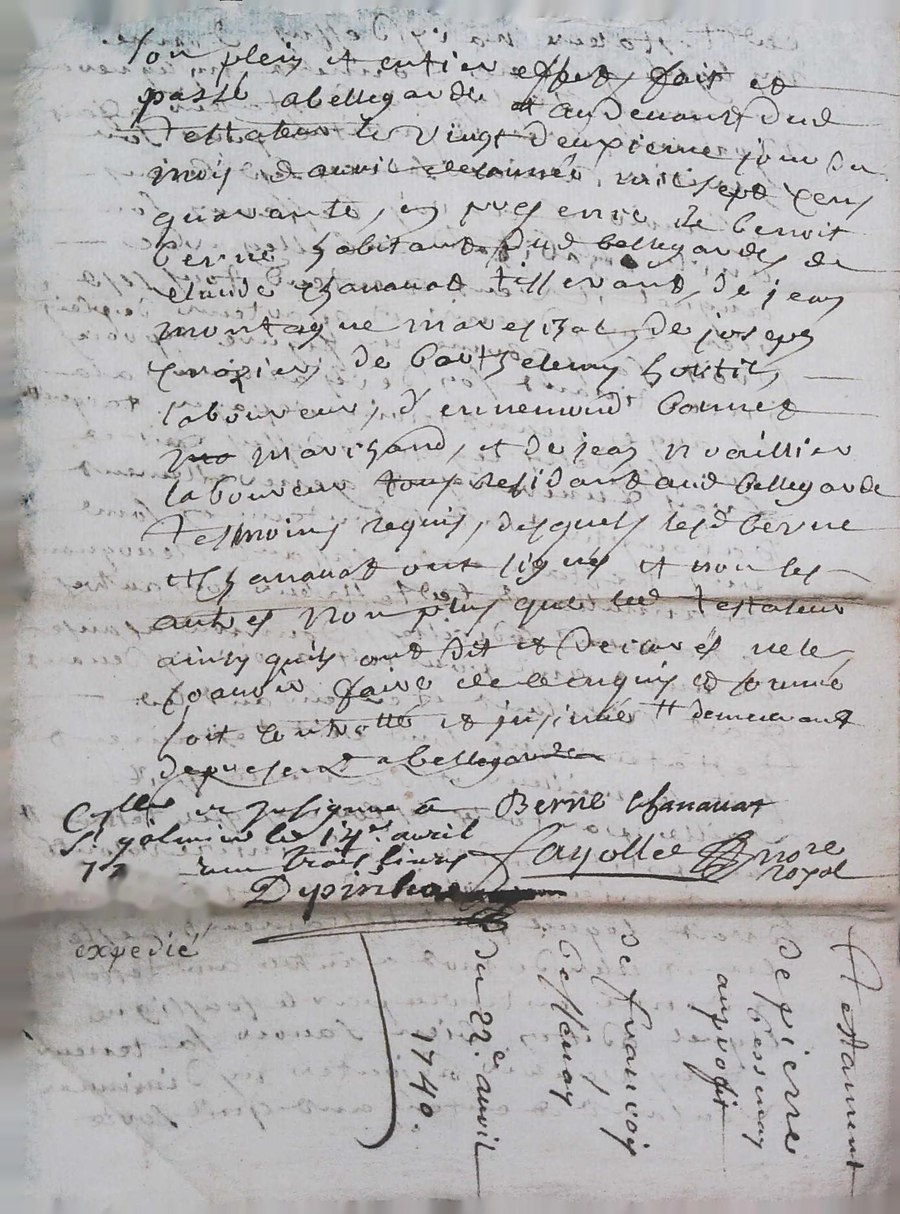 son plein et entier effect, fait et
passé a bellegarde et au devant dud
testateur le vingt deuxieme jour du
mois d'avril de l'année mil sept cens
quarante, en presence de benoit
berne habitant dud bellegarde, de
claude chanavat tisserand, de jean
montagne mareschal, de joseph
de barthelemy
laboureur, d'ennemond bonnet
marchand, et de jean
laboureur tous residant aud bellegarde
tesmoins requis, desquels lesd berne
et chanavat ont signés et non les
autres non plus que led testateur
ainsy quils ont dit et declarés ne le
scavoir faire de ce enquis et sommé
soit controllé et insinué et demeurant
de present a bellegarde
Berne Chanavat
Cyllé et insignué a
St galmier le 14 avril
17 trois livres
fayolle nore
royal
expedié
testament
de pierre
au profit
de francois
du 22.e avril
1740.